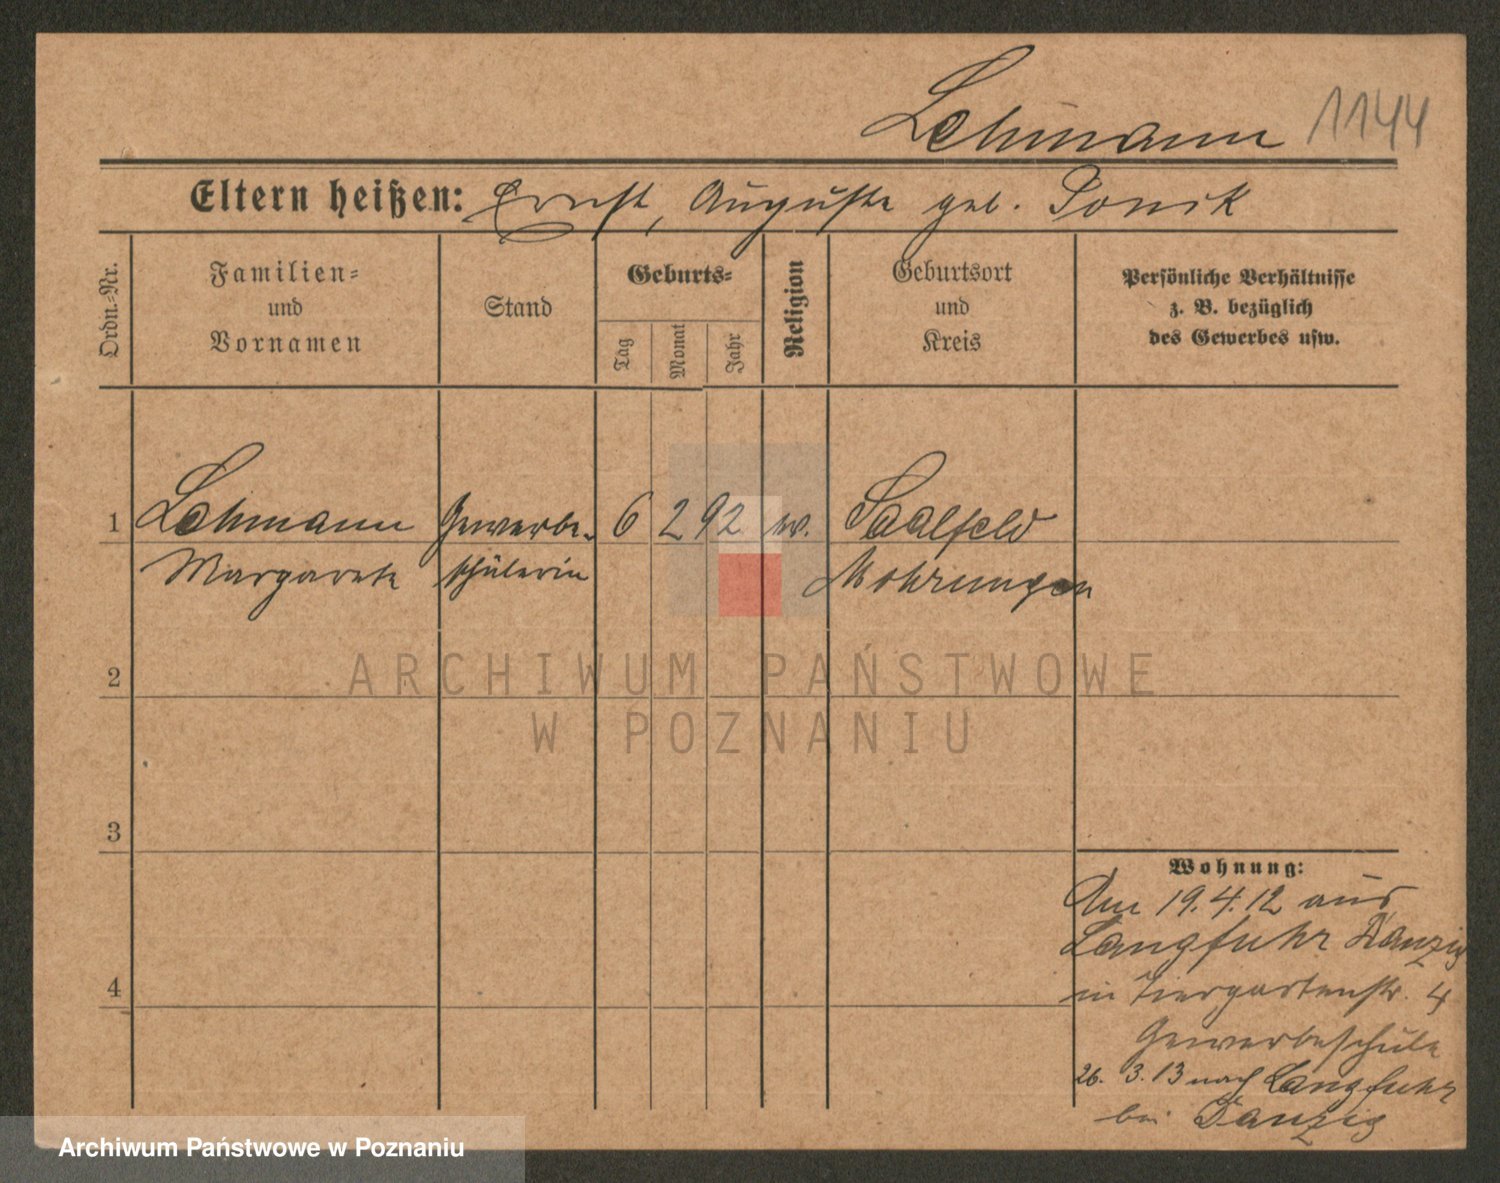 Lehmann 1144
Eltern heißen: Ernst, Auguste geb. Ponik
Ordn.-Nr.
Familien-
und
Vornamen
Stand
Geburts-
Tag
Monat
Jahr
Religion
Geburtsort
und
Kreis
Persönliche Verhältnisse
z. B. bezüglich
des Gewerbes usw.
1 Lehmann Gewerbe- 6 2 92 ev. Saalfeld
Margarete schülerin Mohrungen
ARCHIWUM PAŃSTWOWE
W POZNANIU
2
3
4
Wohnung:
Am 19.4.12 aus
Langfuhr Danzig
in Tiergartenstr. 4
Gewerbeschule
26. 3. 13 nach Langfuhr
bei Danzig
Archiwum Państwowe w Poznaniu